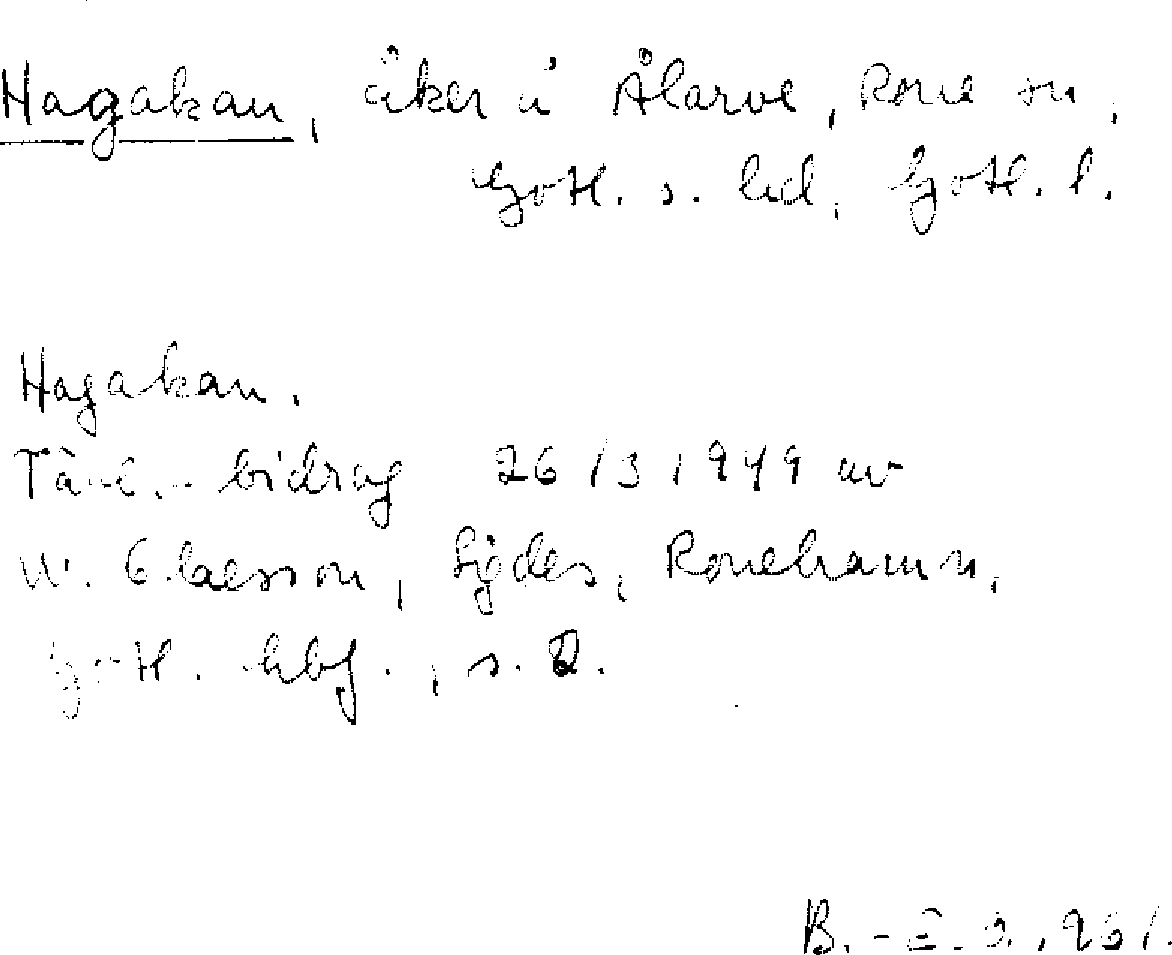 Hagakan, åker å Ålarve, Rone sn,
Gotl. s. hd, Gotl. l.
Hagakan.
Tävl.-bidrag 26/3 1949 av
W. Claesson, Sigdes, Ronehamn,
Gotl. hbf., s. 2.
B. 1961.